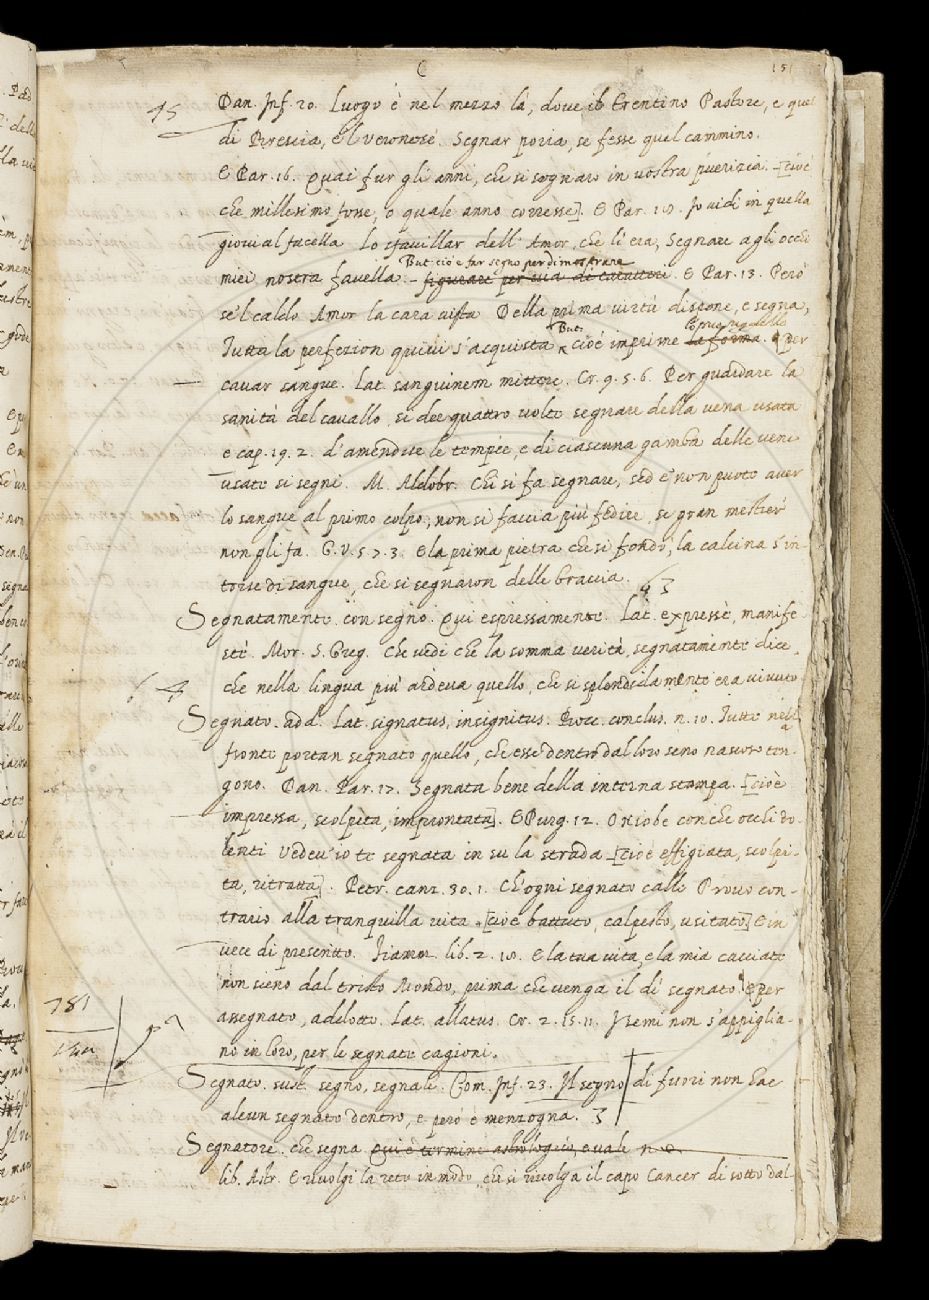 C
151
45
Dan. Inf. 20. Luogo è nel mezzo là, dove il Trentino Pastore, e quel
di Brescia, e'l Veronese. Segnar poria, se fesse quel cammino.
E Par. 16. Quai fur gli anni, che si segnaro in vostra puerizia. [cioè
che millesimo fosse, o quale anno corresse]. E Par. 18. Io vidi in quella
giovial facella Lo sfavillar dell' Amor, che lì era, Segnare agli occhi
But. ciò è far segno per dimostrare
miei nostra favella. figurare per via di caratteri. E Par. 13. Però
se'l caldo Amor la cara vista Della prima virtù dispone, e segna,
But.
Tutta la perfezion quivi s'acquista cioè inprime la forma. ¶ per
cavar sangue. Lat. sanguinem mittere. Cr. 9. 5. 6. Per guardare la
sanità del cavallo, si dee quattro volte segnare della vena usata
e cap. 19. 2. d'amendue le tempie, e di ciascuna gamba delle vene
usate si segni. M. Aldobr. Chi si fa segnare, sed e' non puote aver
lo sangue al primo colpo, non si faccia più fedire, se gran mestier
non gli fa. G. V. 5. 7. 3. E la prima pietra che si fondò, la calcina s'in-
trise di sangue, che si segnaron delle braccia.
63
Segnatamente. con segno. Qui espressamente. Lat. expressè, manife-
stè. Mor. S. Greg. Che vedi che la somma verità, segnatamente dice,
che nella lingua più ardeva quello, che si splendidamente era vivuto.
64
Segnato. add. Lat. signatus, insignitus. Bocc. conclus. n. 10. Tutte nella
fronte portan segnato quello, che esse dentro dal loro seno nascoso ten-
gono. Dan. Par. 17. Segnata bene della interna stampa. [cioè
impressa, scolpita, improntata]. E Purg. 12. O Niobe con che occhi do-
lenti Vedev' io te segnata in su la strada [cioè effigiata, scolpi-
ta, ritratta]. Petr. canz. 30. 1. Ch'ogni segnato calle Provo con-
trario alla tranquilla vita. [cioè battuto, calpesto, usitato] E in
vece di prescritto. Fiamm. lib. 2. 18. E la tua vita, e la mia cacciate
non sieno dal tristo Mondo, prima che venga il dì segnato. E per
assegnato, addotto. Lat. allatus. Cr. 2. 15. 11. I semi non s'appiglia-
no in loro, per le segnate cagioni.
781
Segnato. sust. segno, segnale. Com. Inf. 23. Il segno di fuori non hae
alcun segnato dentro, e però è menzogna. 3
Segnatore. che segna Qui è termine astrologico, e vale
lib. Astr. E rivolgi la rete in modo, che si rivolga il capo Cancer di sotto dal-